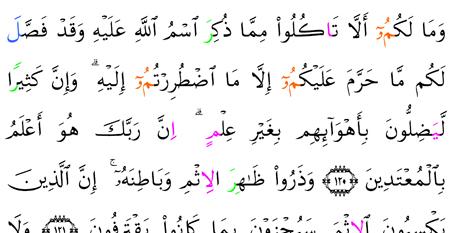 وَمَا لَكُمُۥٓ أَلَّا تَاكُلُواْ مِمَّا ذُكِرَ اَسْمُ اُللَّهِ عَلَيْهِ وَقَدْ فَصَّلَ
لَكُم مَّا حَرَّمَ عَلَيْكُمُۥٓ إِلَّا مَا اَضْطُرِرْتُمُۥٓ إِلَيْهِ ۗ وَإِنَّ كَثِيرًا
لَّيَضِلُّونَ بِأَهْوَآئِهِم بِغَيْرِ عِلْمٍ ۗ اِنَّ رَبَّكَ هُوَ أَعْلَمُ
بِالْمُعْتَدِينَ ١٢٠ وَذَرُواْ ظَٰهِرَ اَلِاثْمِ وَبَاطِنَهُۥٓ ۚ إِنَّ اَلَّذِينَ
يَكْسِبُونَ اَلِاثْمَ سَيُجْزَوْنَ بِمَا كَانُواْ يَقْتَرِفُونَ ١٢١ وَلَا